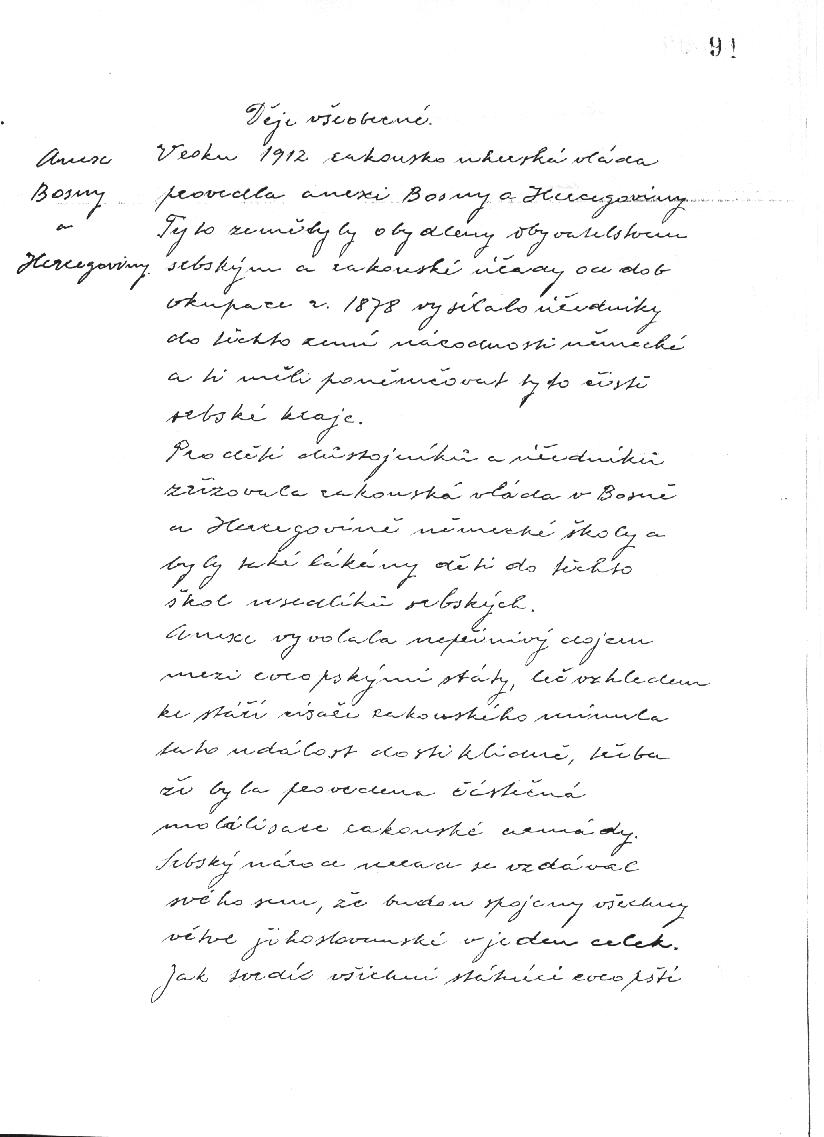 91
Děje všeobecné.
Anexe
Bosny
a
Hercegoviny
V roku 1912 rakousko uherská vláda
provedla anexi Bosny a Hercegoviny
Tyto země byly obydleny obyvatelstvem
srbským a rakouské úřady od dob
okupace r. 1878 vysílalo úředníky
do těchto zemí národnosti německé
a ti měli poněmčovat tyto čistě
srbské kraje.
Pro děti důstojníků a úředníků
zřizovala rakouská vláda v Bosně
a Hercegovině německé školy a
byly také lákány děti do těchto
škol usedlíků srbských.
Anexe vyvolala nepříznivý dojem
mezi evropskými státy, leč vzhledem
ke stáří císaře rakouského minula
tato událost dosti klidně, třeba
že byla provedena částečná
mobilisace rakouské armády.
Srbský národ nerad se vzdával
svého snu, že budou spojeny všechny
větve jihoslovanské v jeden celek.
Jak svedli všichni státníci evropští